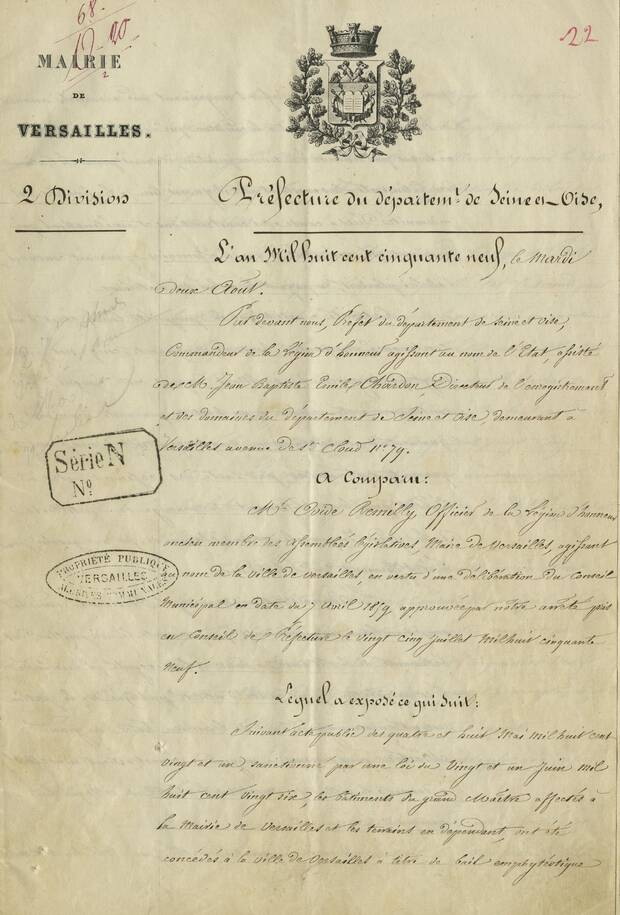 68.
22
MAIRIE
DE
VERSAILLES.
2 Division
Préfecture du départemt. de Seine et-Oise,
L'an Mil huit cent cinquante neuf, le Mardi
deux Août.
Par devant nous, Préfet du département de Seine et Oise,
Commandeur de la Légion d'honneur agissant au nom de l'Etat, assisté
de M. Jean Baptiste Emile Chardon, Directeur de l'enregistrement
et des domaines du département de Seine et Oise, demeurant à
Versailles avenue de St. Cloud No. 79.
Série N
No
A Comparu:
Mr. Ovide Remilly, Officier de la Légion d'honneur
ancien membre des Assemblées législatives, Maire de Versailles, agissant
PROPRIÉTÉ PUBLIQUE
VERSAILLES
ARCHIVES COMMUNALES
au nom de la ville de Versailles, en vertu d'une délibération du Conseil
Municipal en date du 7 Avril 1859, approuvée par notre arrêté pris
en Conseil de Préfecture le vingt cinq Juillet Mil huit cinquante
neuf.
Lequel a exposé ce qui suit:
Suivant acte public des quatre et huit Mai Mil huit cent
vingt et un, sanctionné par une loi du Vingt et un Juin Mil
huit cent vingt six, les bâtiments du grand Maître affectés à
la Mairie de Versailles et les terrains en dépendant, ont été
concédés à la ville de Versailles à titre de bail emphytéotique